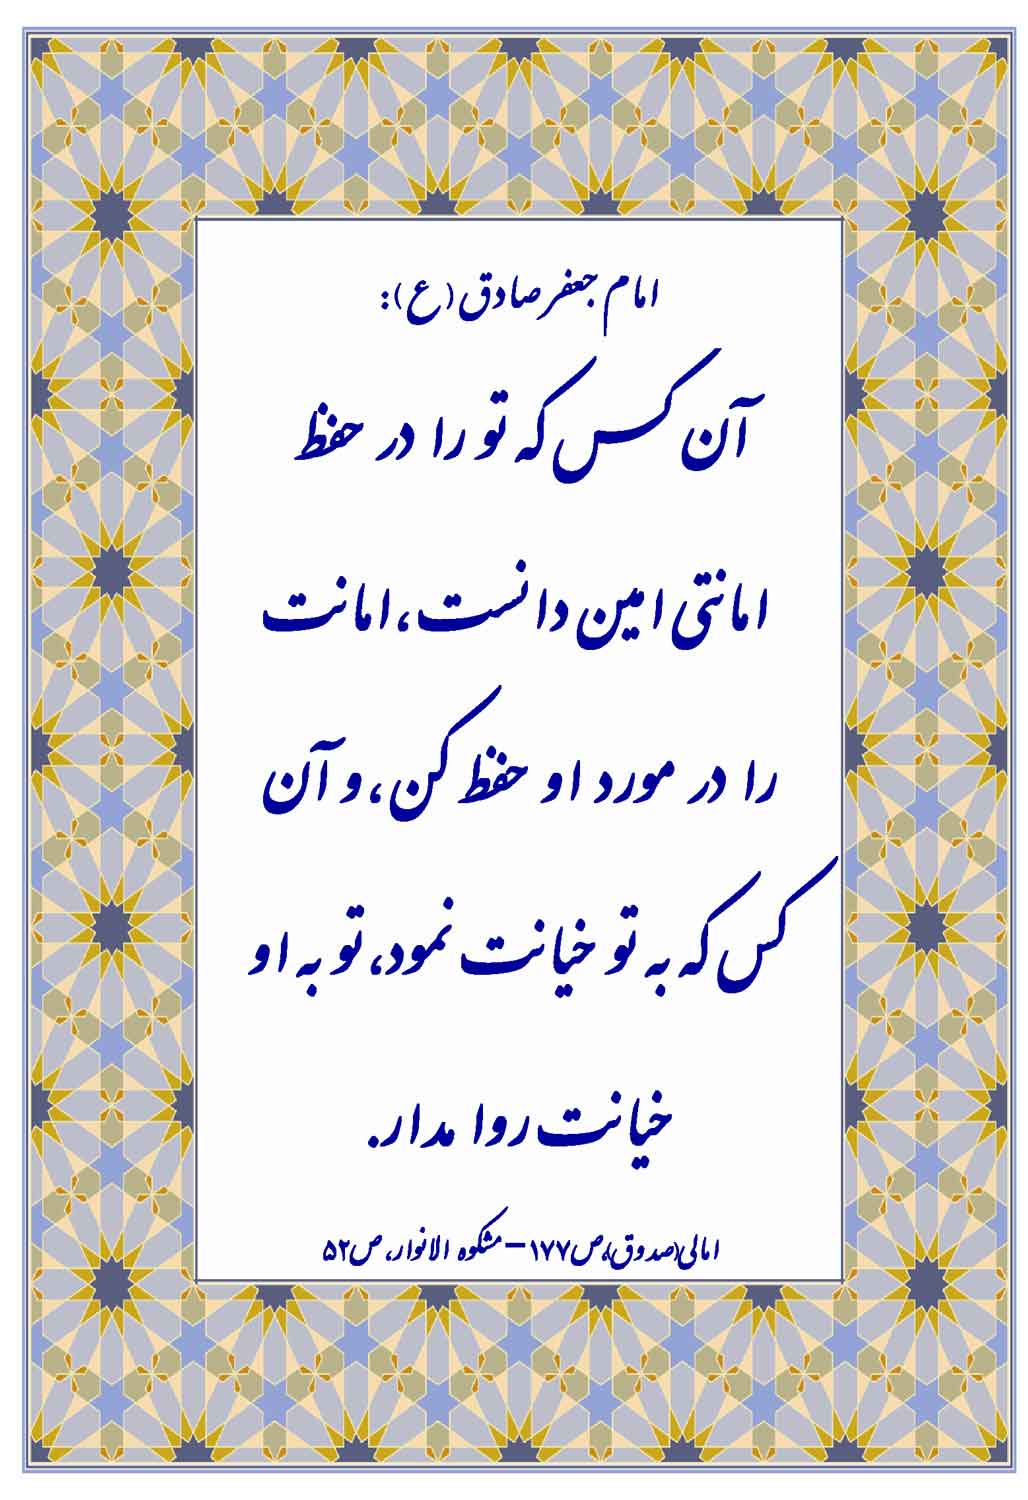 امام جعفر صادق (ع):
آن کس که تو را در حفظ
امانتی امین دانست، امانت
را در مورد او حفظ کن، و آن
کس که به تو خیانت نمود، تو به او
خیانت روا مدار.
امالی(صدوق)،ص۱۷۷-مشکوه الانوار، ص۵۲